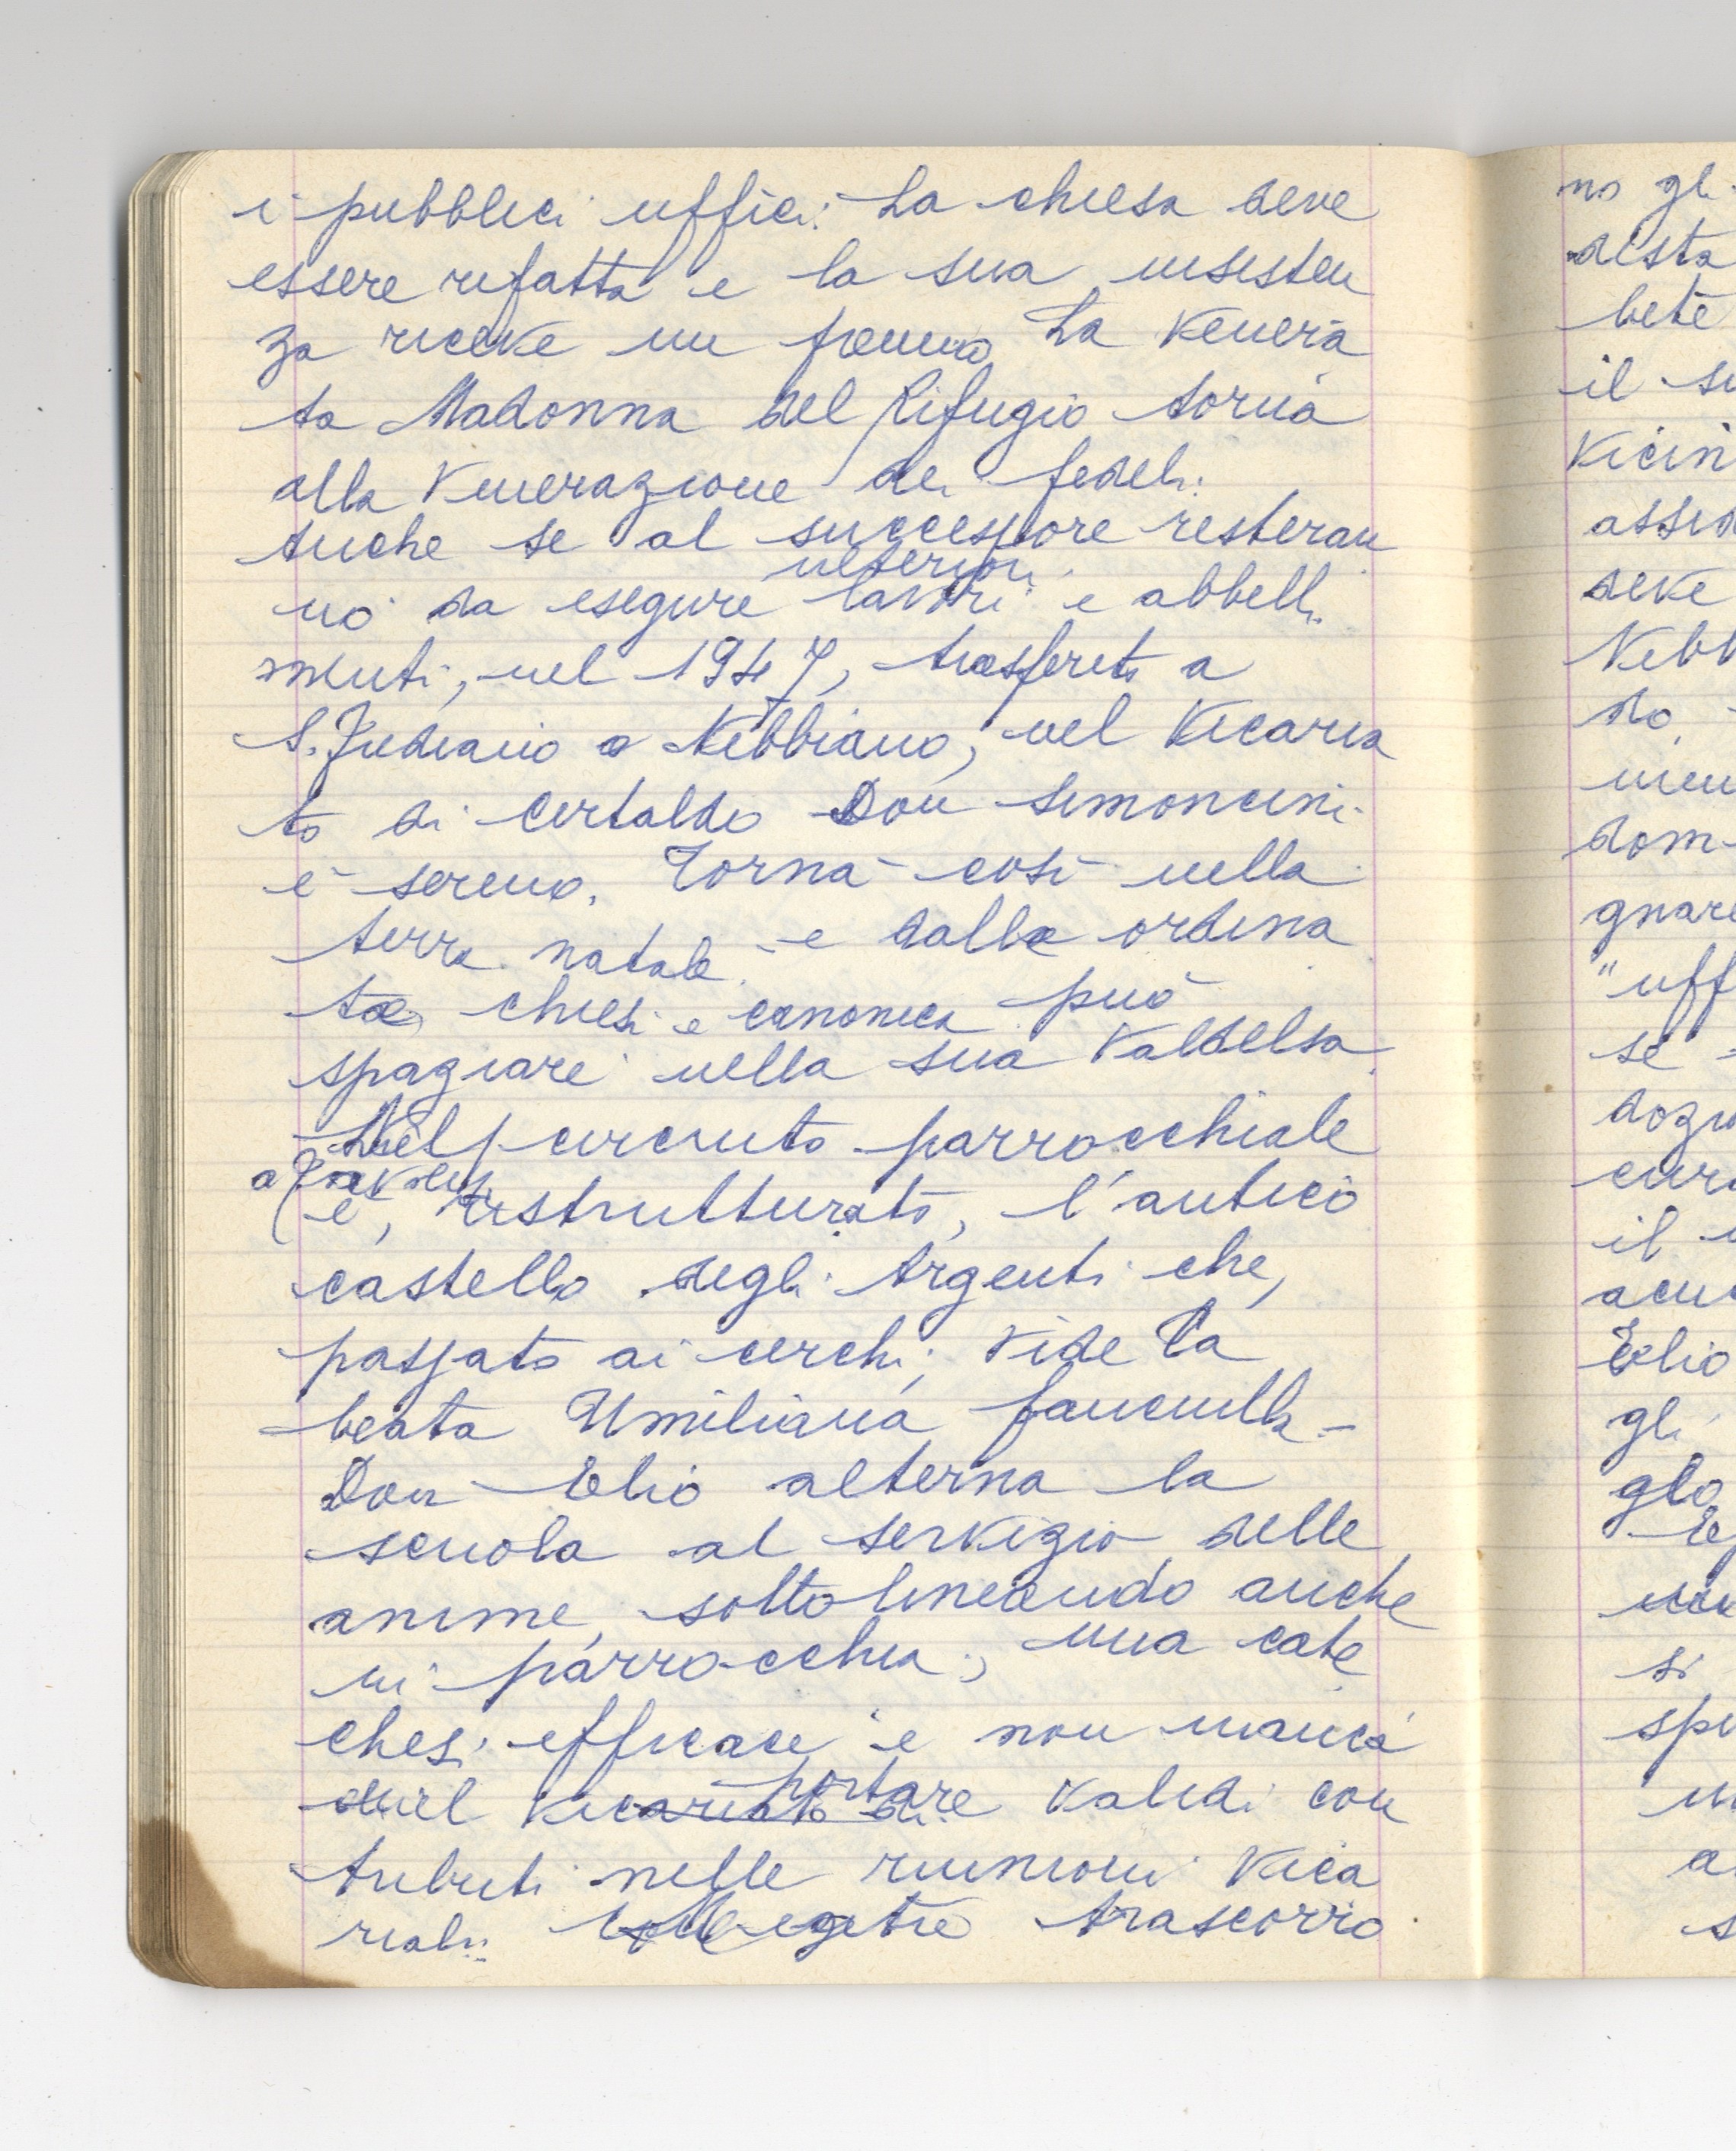 i pubblici uffici. La chiesa deve
essere rifatta e la sua insisten
za riceve un premio. La Venera
ta Madonna del Rifugio torna
alla Venerazione dei fedeli.
Anche se al successore resteran
ulteriori
no da eseguire lavori e abbelli
menti, nel 1947, trasferito a
S. Indiano a Nebbiano, nel Vicaria
to di Certaldo Don Simoncini
è sereno. Torna così nella
terra natale e dalla ordina
ta chiesa e canonica può
spaziare nella sua Valdelsa.
Nel circuito parrocchiale
a
è, ristrutturato, l'antico
castello degli Argenti che,
passato ai cerchi, vide la
beata Umiliana fanciulla -
Don Elio alterna la
scuola al servizio delle
anime, sottolineando anche
in parrocchia, una cate
chesi efficace e non manca
portare
nel Vicariato di validi con
tributi nelle riunioni Vica
riali. trascorro
no gli
desta
bete
il su
Vicin
deve
Nebb
do,
dom
gnare
"uff
se
il
Elio
gli
glo
si